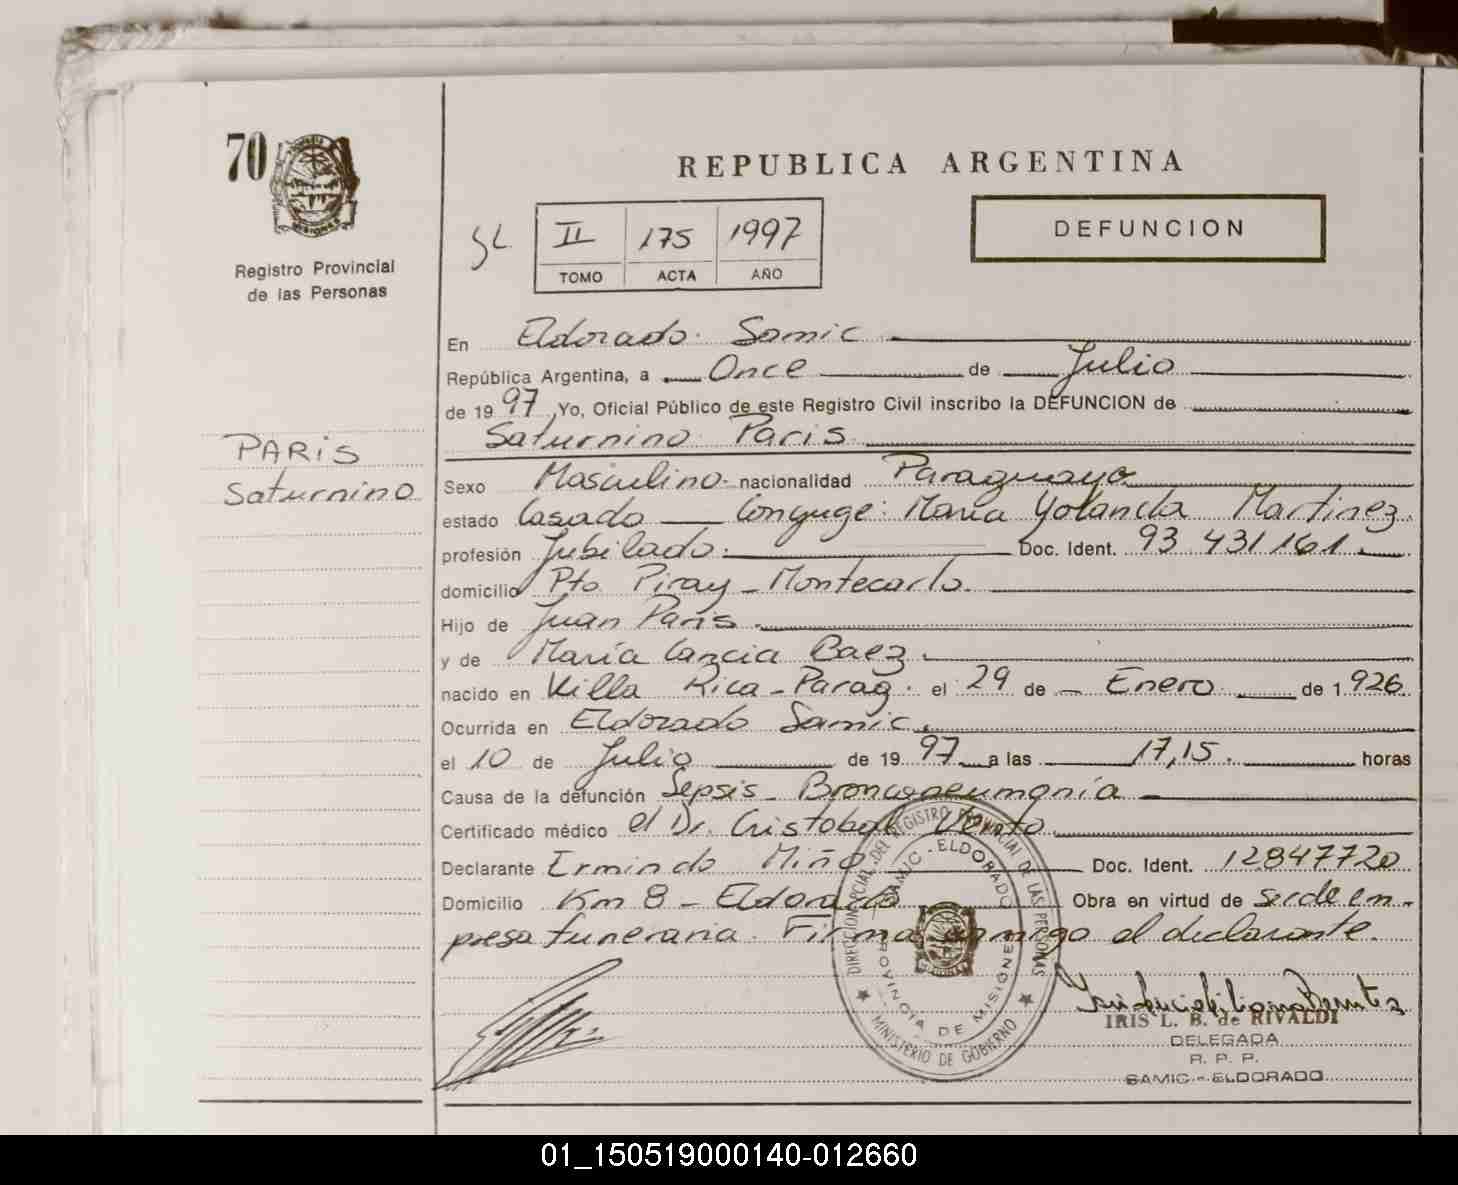 70
MISIONES
Registro Provincial
de las Personas
REPUBLICA ARGENTINA
DEFUNCION
SL
II 175 1997
TOMO ACTA AÑO
En Eldorado. Samic
República Argentina, a Once de Julio
de 1997, Yo, Oficial Público de este Registro Civil inscribo la DEFUNCION de
Saturnino Paris
PARIS
Saturnino
Sexo Masculino. nacionalidad Paraguayo
estado Casado Conyuge: María Yolanda Martinez.
profesión Jubilado. Doc. Ident. 93 431161.
domicilio Pto Piray - Montecarlo.
Hijo de Juan Paris.
y de María Baez.
nacido en Villa Rica - Parag. el 29 de Enero de 1926.
Ocurrida en Eldorado Samic.
el 10 de Julio de 1997 a las 17,15. horas
Causa de la defunción Sepsis - Bronconeumonía
Certificado médico el Dr. Cristobal
Declarante Ermindo Miño Doc. Ident. 12847720
Domicilio Km 8 - Eldorado Obra en virtud de ser de em-
presa funeraria. Firma conmigo el declarante.
DIRECCION PCIAL. DEL REGISTRO PROVINCIAL DE LAS PERSONAS
SAMIC - ELDORADO
PROVINCIA DE MISIONES
MINISTERIO DE GOBIERNO
IRIS L. B. de RIVALDI
DELEGADA
R. P. P.
SAMIC - ELDORADO
01_150519000140-012660